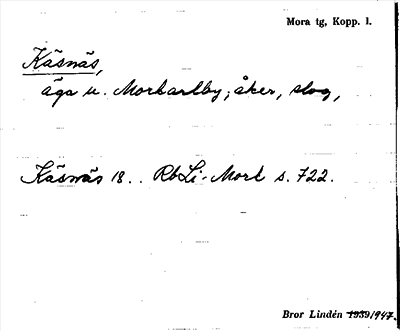 Mora tg, Kopp. l.
Käsnäs,
äga u. Morkarlby; åker, slog,
Käsnäs 18.. RbLi-Mork s. 722.
Bror Lindén 1939/1947.